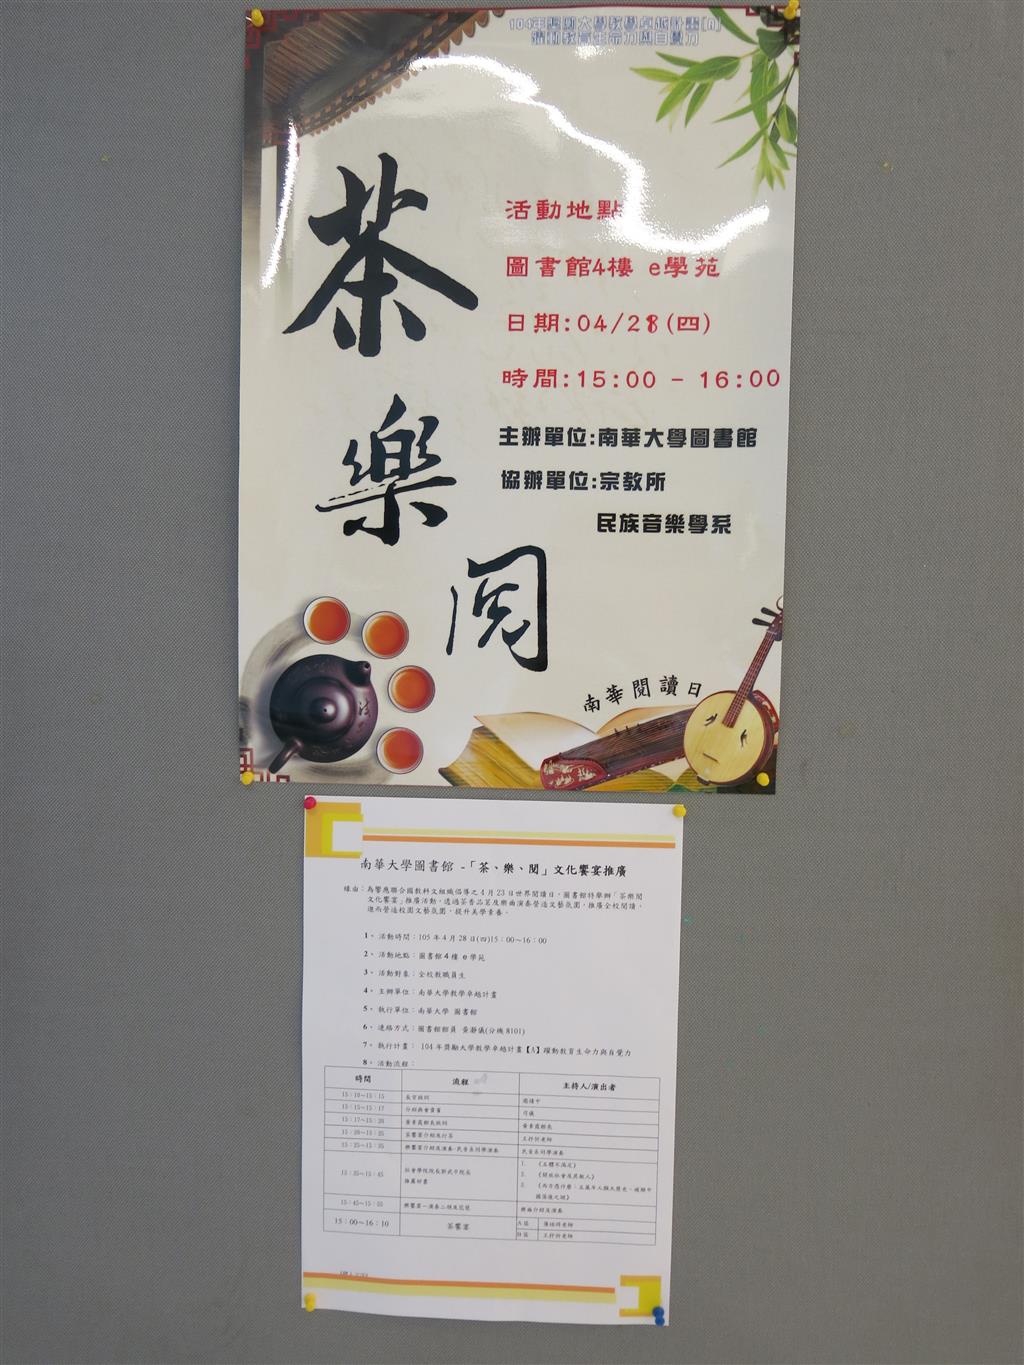 104年獎勵大學教學卓越計畫[A]
躍動教育生命力與自覺力
茶
樂
閱
活動地點
圖書館4樓 e學苑
日期:04/28(四)
時間:15:00 - 16:00
主辦單位:南華大學圖書館
協辦單位:宗教所
民族音樂學系
南華閱讀日
南華大學圖書館 -「茶、樂、閱」文化饗宴推廣
緣由：為響應聯合國教科文組織倡導之4月23日世界閱讀日，圖書館特舉辦「茶樂閱
文化饗宴」推廣活動，透過茶香品茗及樂曲演奏營造文藝氛圍，推廣全校閱讀、
進而營造校園文藝氛圍，提升美學素養。
1、活動時間：105年4月28日(四)15：00～16：00
2、活動地點：圖書館4樓 e學苑
3、活動對象：全校教職員生
4、主辦單位：南華大學教學卓越計畫
5、執行單位：南華大學 圖書館
6、連絡方式：圖書館館員 黃瀞儀(分機8101)
7、執行計畫： 104年獎勵大學教學卓越計畫【A】躍動教育生命力與自覺力
8、活動流程：
時間 流程 主持人/演出者
15：10～15：15 長官致詞
15：15～15：17 介紹與會貴賓 司儀
15：17～15：20 黃素霞館長致詞 黃素霞館長
15：20～15：25 茶饗宴介紹及行茶 王抒忻老師
15：25～15：35 樂饗宴介紹及演奏-民音系同學演奏 民音系同學演奏
15：35～15：45 社會學院院長郭武平院長
推薦好書
1. 《五體不滿足》
2. 《開放社會及其敵人》
3.
15：45～15：55 樂曲介紹及演奏
15：00～16：10 茶饗宴 A區
B區 王抒忻老師